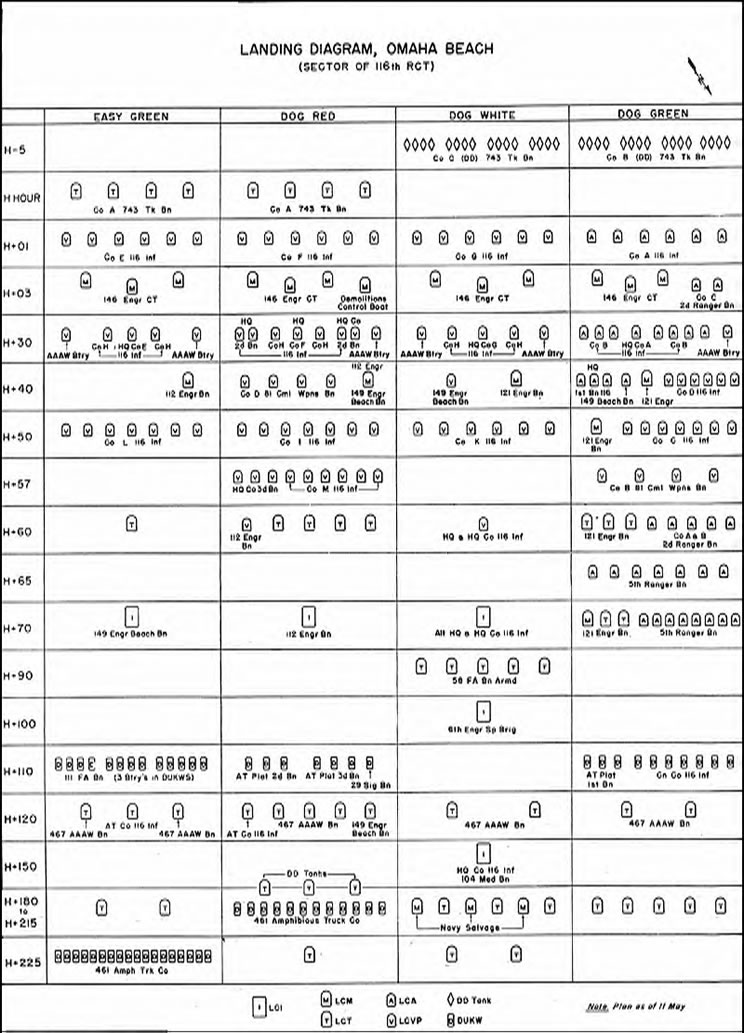 LANDING DIAGRAM, OMAHA BEACH
(SECTOR OF 116th RCT)
EASY GREEN DOG RED DOG WHITE DOG GREEN
H-5
Co C (DD) 743 Tk Bn Co B (DD) 743 Tk Bn
H HOUR
T T T T T T T T
Co A 743 Tk Bn Co A 743 Tk Bn
H+01
V V V V V V V V V V V V V V V V V V A A A A A A
Co E 116 Inf Co F 116 Inf Co G 116 Inf Co A 116 Inf
H+03
M M M M M M M M M M M M M A A
146 Engr CT 146 Engr CT Demolitions Control Boat 146 Engr CT 146 Engr CT Co C 2d Ranger Bn
H+30
HQ HQ HQ Co
CoH HQ CoE CoH 2d Bn CoH CoF CoH 2d Bn CoH HQ CoG CoH CoB HQ CoA CoB
116 Inf 116 Inf 116 Inf 116 Inf
AAAW Btry AAAW Btry AAAW Btry AAAW Btry AAAW Btry AAAW Btry
H+40
112 Engr HQ
112 Engr Bn Co D 81 Cml Wpns Bn 149 Engr Beach Bn 149 Engr Beach Bn 121 Engr Bn 1st Bn 116 Co D 116 Inf
149 Beach Bn 121 Engr
H+50
Co L 116 Inf Co I 116 Inf Co K 116 Inf 121 Engr Bn Co C 116 Inf
H+57
HQ Co 3d Bn Co M 116 Inf Co B 81 Cml Wpns Bn
H+60
112 Engr Bn HQ & HQ Co 116 Inf 121 Engr Bn Co A & B 2d Ranger Bn
H+65
A A A A A A A
5th Ranger Bn
H+70
149 Engr Beach Bn 112 Engr Bn Alt HQ & HQ Co 116 Inf 121 Engr Bn 5th Ranger Bn
H+90
T T T T T
58 FA Bn Armd
H+100
I
6th Engr Sp Brig
H+110
111 FA Bn (3 Btry's in DUKWS) AT Plat 2d Bn AT Plat 3d Bn AT Plat 1st Bn Cn Co 116 Inf
29 Sig Bn
H+120
467 AAAW Bn AT Co 116 Inf 467 AAAW Bn AT Co 116 Inf 467 AAAW Bn 149 Engr Beach Bn 467 AAAW Bn 467 AAAW Bn
H+150
I
HQ Co 116 Inf
104 Med Bn
DD Tanks
H+180
to
H+215
461 Amphibious Truck Co Navy Salvage
H+225
461 Amph Trk Co
I LCI M LCM A LCA DD Tank
T LCT V LCVP D DUKW
Note. Plan as of 11 May